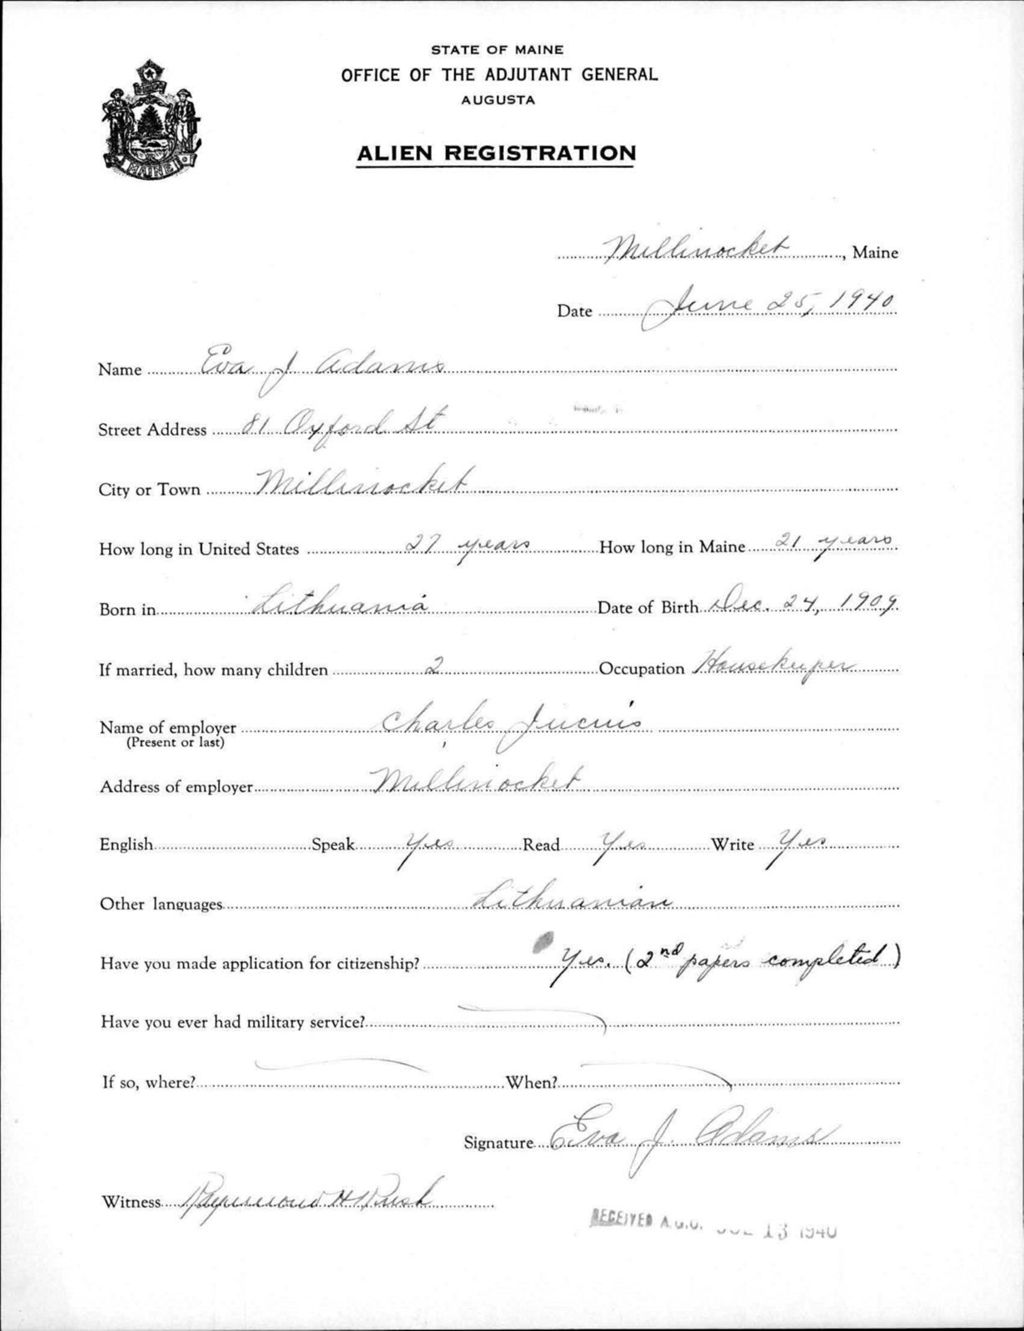 STATE OF MAINE
OFFICE OF THE ADJUTANT GENERAL
AUGUSTA
ALIEN REGISTRATION
MAINE
Millinocket, Maine
Date June 25, 1940
Name Eva J Adams
Street Address 81 Oxford St
City or Town Millinocket
How long in United States 27 years How long in Maine 21 years
Born in Lithuania Date of Birth Dec. 24, 1909
If married, how many children 2 Occupation Housekeeper
Name of employer Charles Jucius
(Present or last)
Address of employer Millinocket
English Speak Yes Read Yes Write Yes
Other languages Lithuanian
Have you made application for citizenship? Yes. (2nd papers completed)
Have you ever had military service?
If so, where? When?
Signature Eva J. Adams
Witness Raymond H Rush
RECEIVED A.G.O. 13 1940